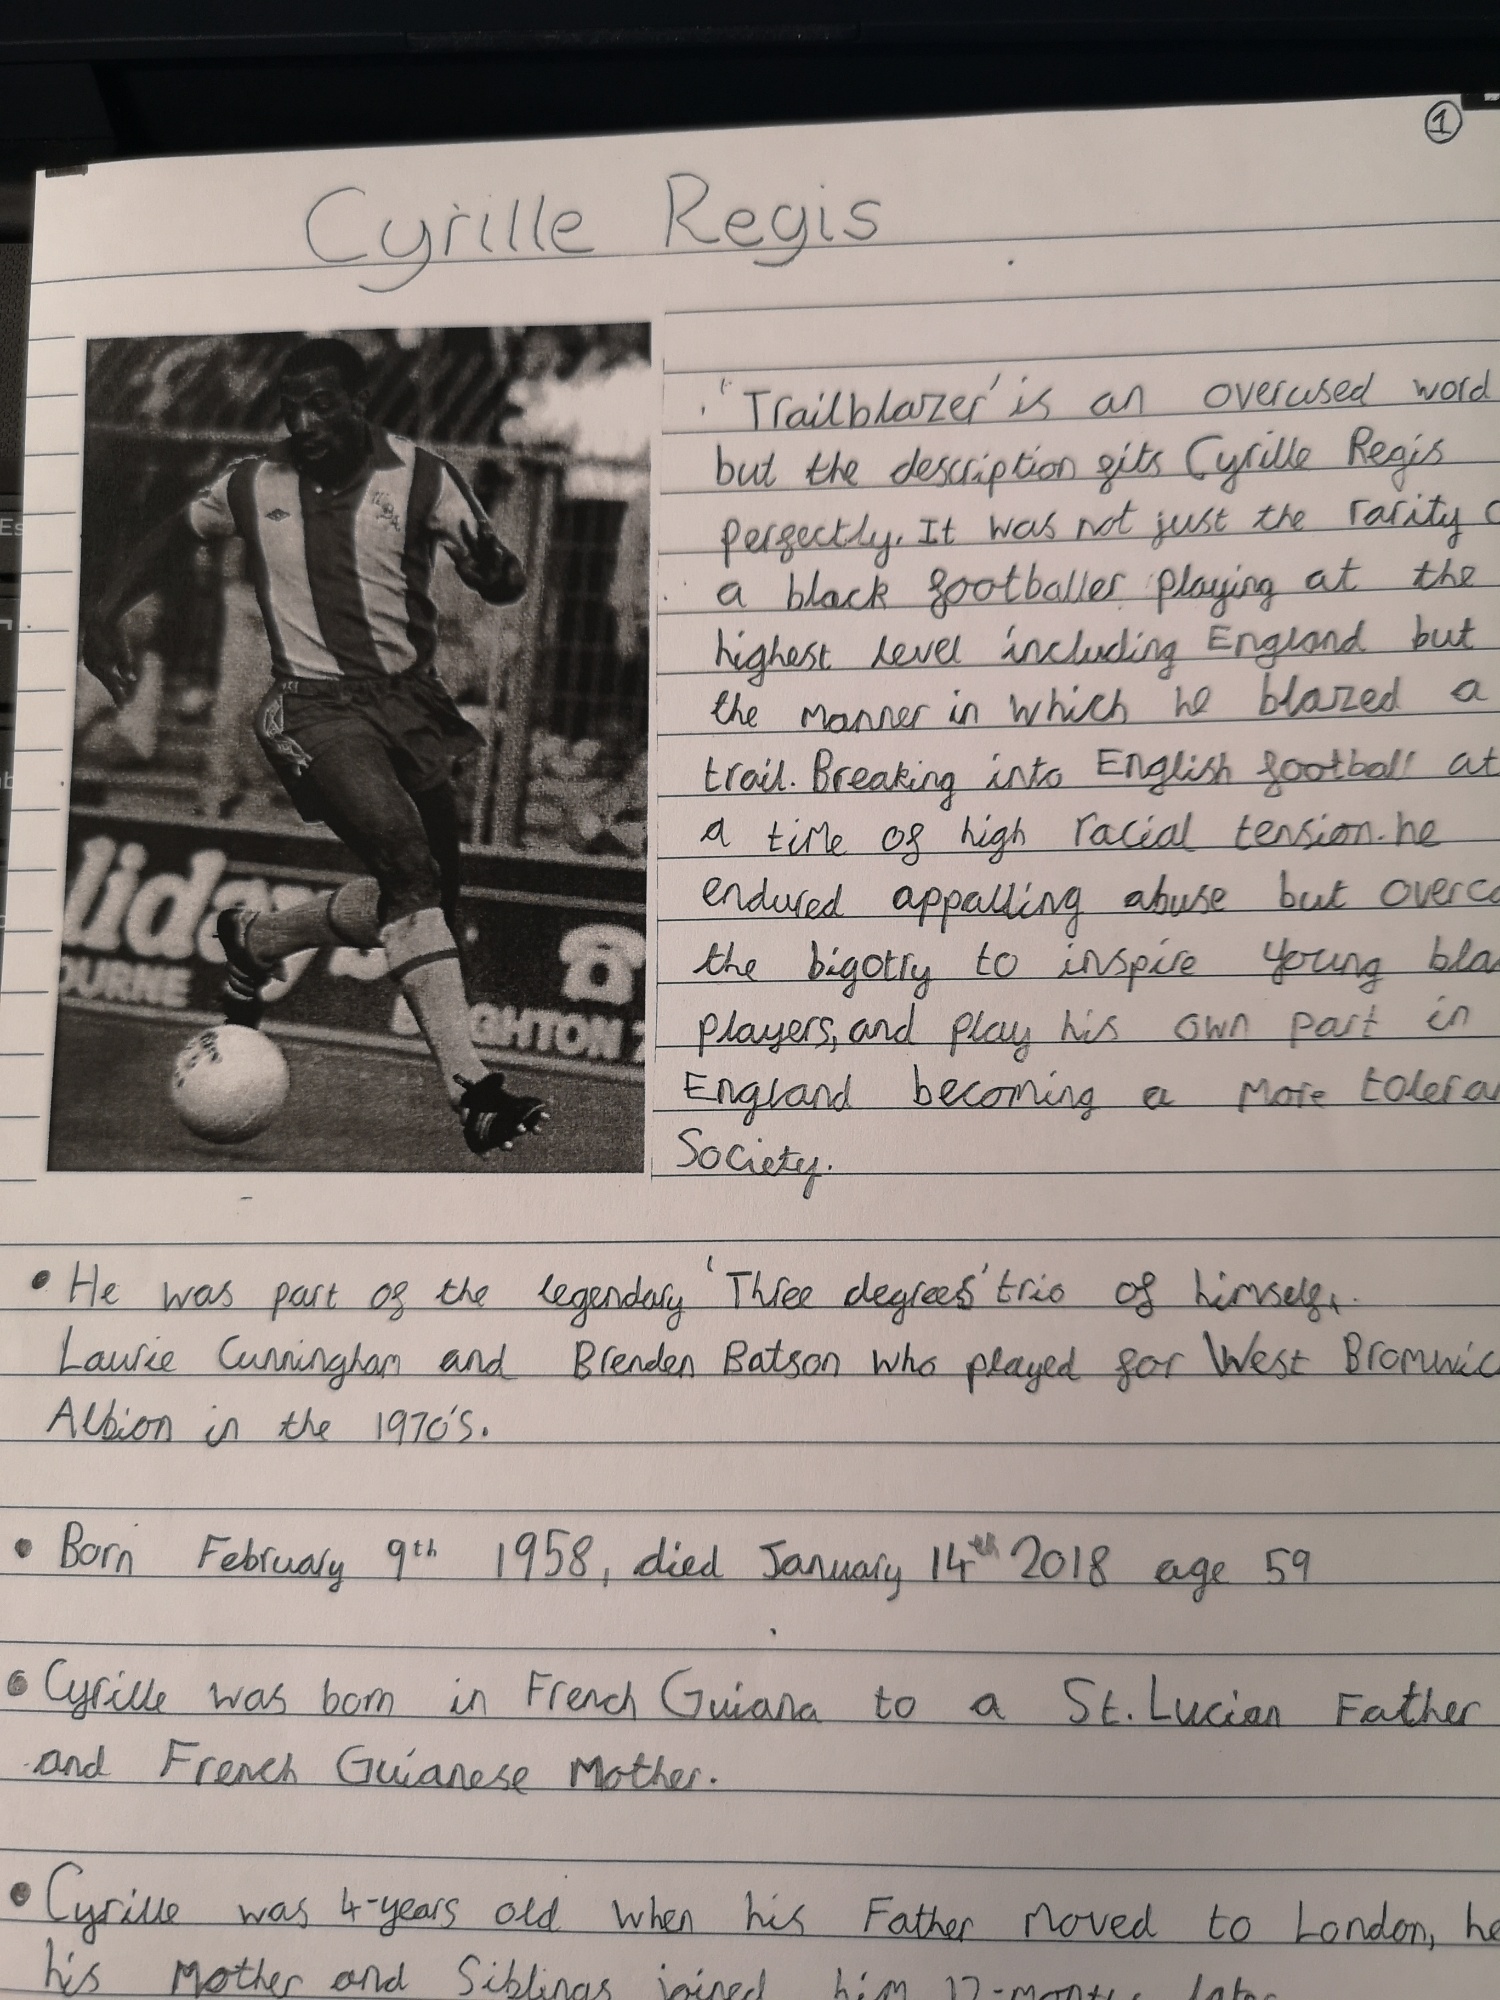 1
Cyrille Regis
'Trailblazer' is an overused word
but the description fits Cyrille Regis
perfectly. It was not just the rarity
a black footballer playing at the
highest level including England but
the manner in which he blazed a
trail. Breaking into English football at
a time of high racial tension. he
endured appalling abuse but overco
the bigotry to inspire young bla
players, and play his own part in
England becoming a more tolera
Society.
liday
OURNE
GHTON
• He was part of the legendary 'Three degrees' trio of himself,
Laurie Cunningham and Brenden Batson who played for West Bromwic
Albion in the 1970's.
• Born February 9th 1958, died January 14th 2018 age 59
• Cyrille was born in French Guiana to a St. Lucian Father
and French Guianese Mother.
• Cyrille was 4-years old when his Father moved to London, he
his Mother and Siblings joined him 12-months later